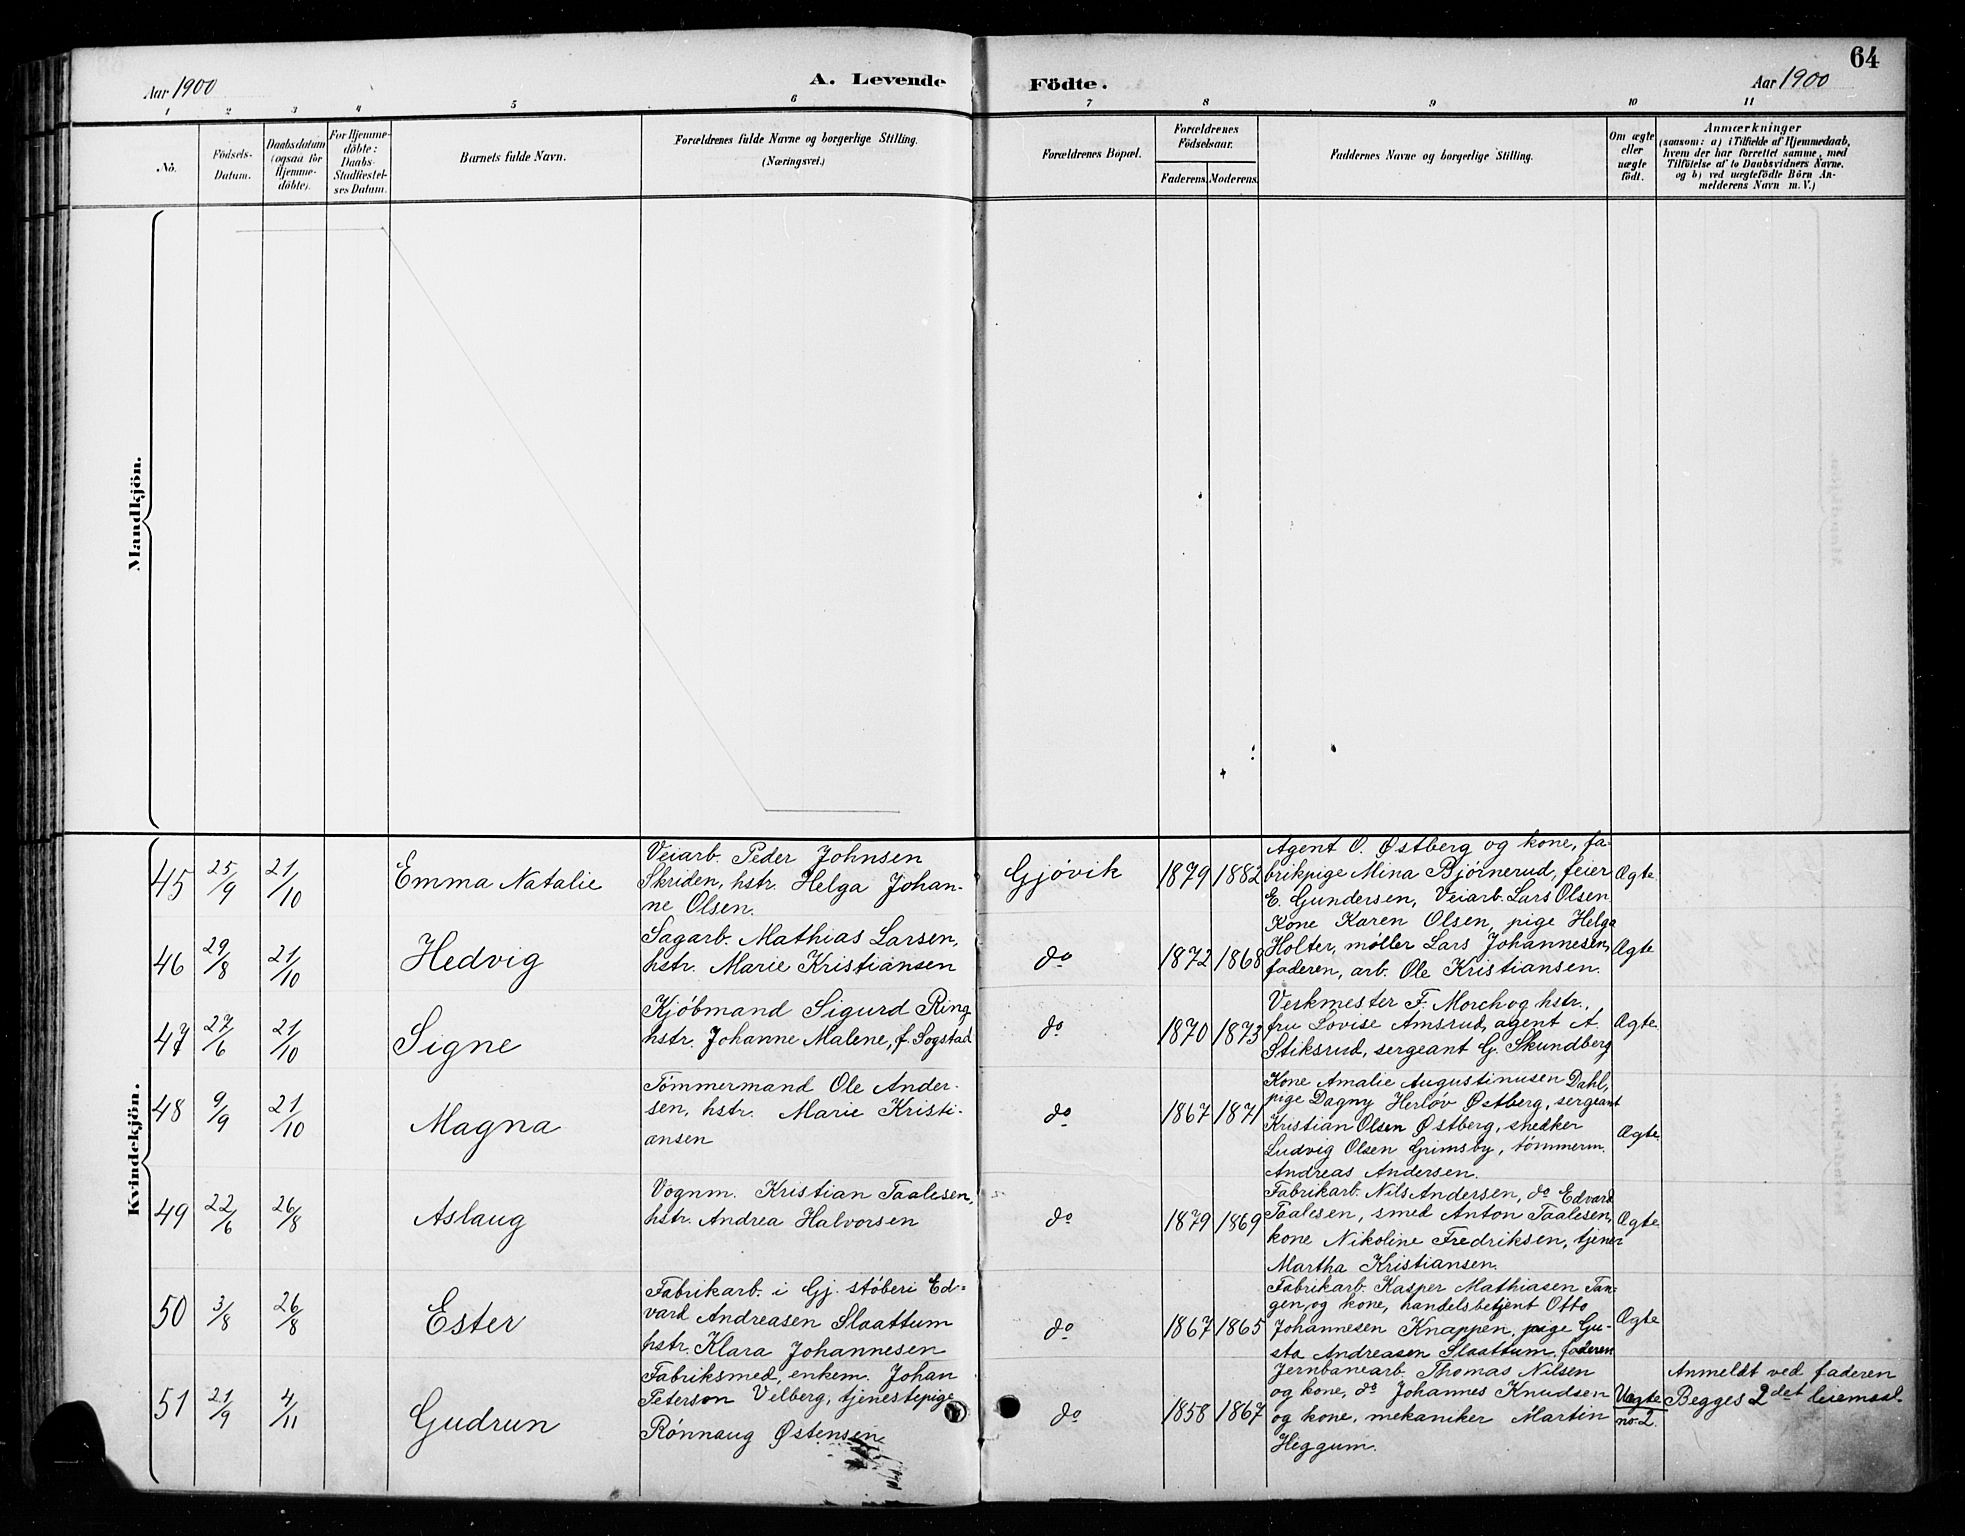 64
Aar 1900
A. Levende Födte.
Aar 1900
1 2 3 4 5 6 7 8 9 10 11
No.
Födsels-
Datum.
Daabsdatum
(ogsaa for
Hjemme-
döbte).
For Hjemme-
döbte:
Daabs-
Stadfæstel-
ses Datum.
Barnets fulde Navn.
Forældrenes fulde Navne og borgerlige Stilling.
(Næringsvei.)
Forældrenes Bopæl.
Forældrenes
Födselsaar.
Faderens. Moderens.
Faddernes Navne og borgerlige Stilling.
Om ægte
eller
uægte
födt.
Anmærkninger
(saasom: a) i Tilfælde af Hjemmedaab,
hvem der har forrettet samme, med
Tilföielse af to Daabsvidners Navne.
og b) ved uægtefödte Börn An-
melderens Navn m. V.)
Mandkjön.
Kvindekjön.
45
25/9
21/10
Emma Natalie
Veiarb. Peder Johnsen
Skriden, hstr. Helga Johan-
ne Olsen.
Gjøvik
1879
1882
Agent O. Østberg og kone, fa-
brikpige Mina Bjørnerud, feier
E. Gundersen, Veiarb. Lars Olsen
Ægte
46
29/8
21/10
Hedvig
Sagarb. Mathias Larsen,
hstr. Marie Kristiansen
do
1872
1868
Kone Karen Olsen, pige Helga
Holter, møller Lars Johannesen,
faderen, arb. Ole Kristiansen.
Ægte
47
27/6
21/10
Signe
Kjøbmand Sigurd Ring
hstr. Johanne Malene, f. Sogstad
do
1870
1873
Verkmester F. Morch og hstr.,
fru Lovise Amsrud, agent A.
Stiksrud, sergeant G. Skundberg
Ægte
48
9/9
21/10
Magna
Tømmermand Ole Ander-
sen, hstr. Marie Kristi-
ansen
do
1867
1871
Kone Amalie Augustinusen Dahl,
pige Dagny Herløv Østberg, sergeant
Kristian Olsen Østberg, snedker
Ludvig Olsen Grimsby, tømmerm.
Andreas Andersen.
Ægte
49
22/6
26/8
Aslaug
Vognm. Kristian Taalesen,
hstr. Andrea Halvorsen
do
1879
1869
Fabrikarb. Nils Andersen, do Edvard
Taalesen, smed Anton Taalesen,
kone Nikoline Fredriksen, tjener
Martha Kristiansen.
Ægte
50
3/8
26/8
Ester
Fabrikarb. i Gj. støberi Ed-
vard Andreasen Slaattum
hstr. Klara Johannesen
do
1867
1865
Fabrikarb. Kasper Mathiasen Tan-
gen, og kone, handelsbetjent Otto
Johannesen Knappen, pige Gu-
sta Andreasen Slaattum, faderen
Ægte
51
21/9
4/11
Gudrun
Fabriksmed, enkem. Johan
Peterson Velberg, tjenestepige
Rønnaug Østensen
do
1858
1867
Jernbanearb. Thomas Nilsen
og kone, do Johannes Knudsen
og kone, mekaniker Martin
Heggum.
Uægte
no. 2.
Anmeldt ved faderen
Begges 2det leiemaal.